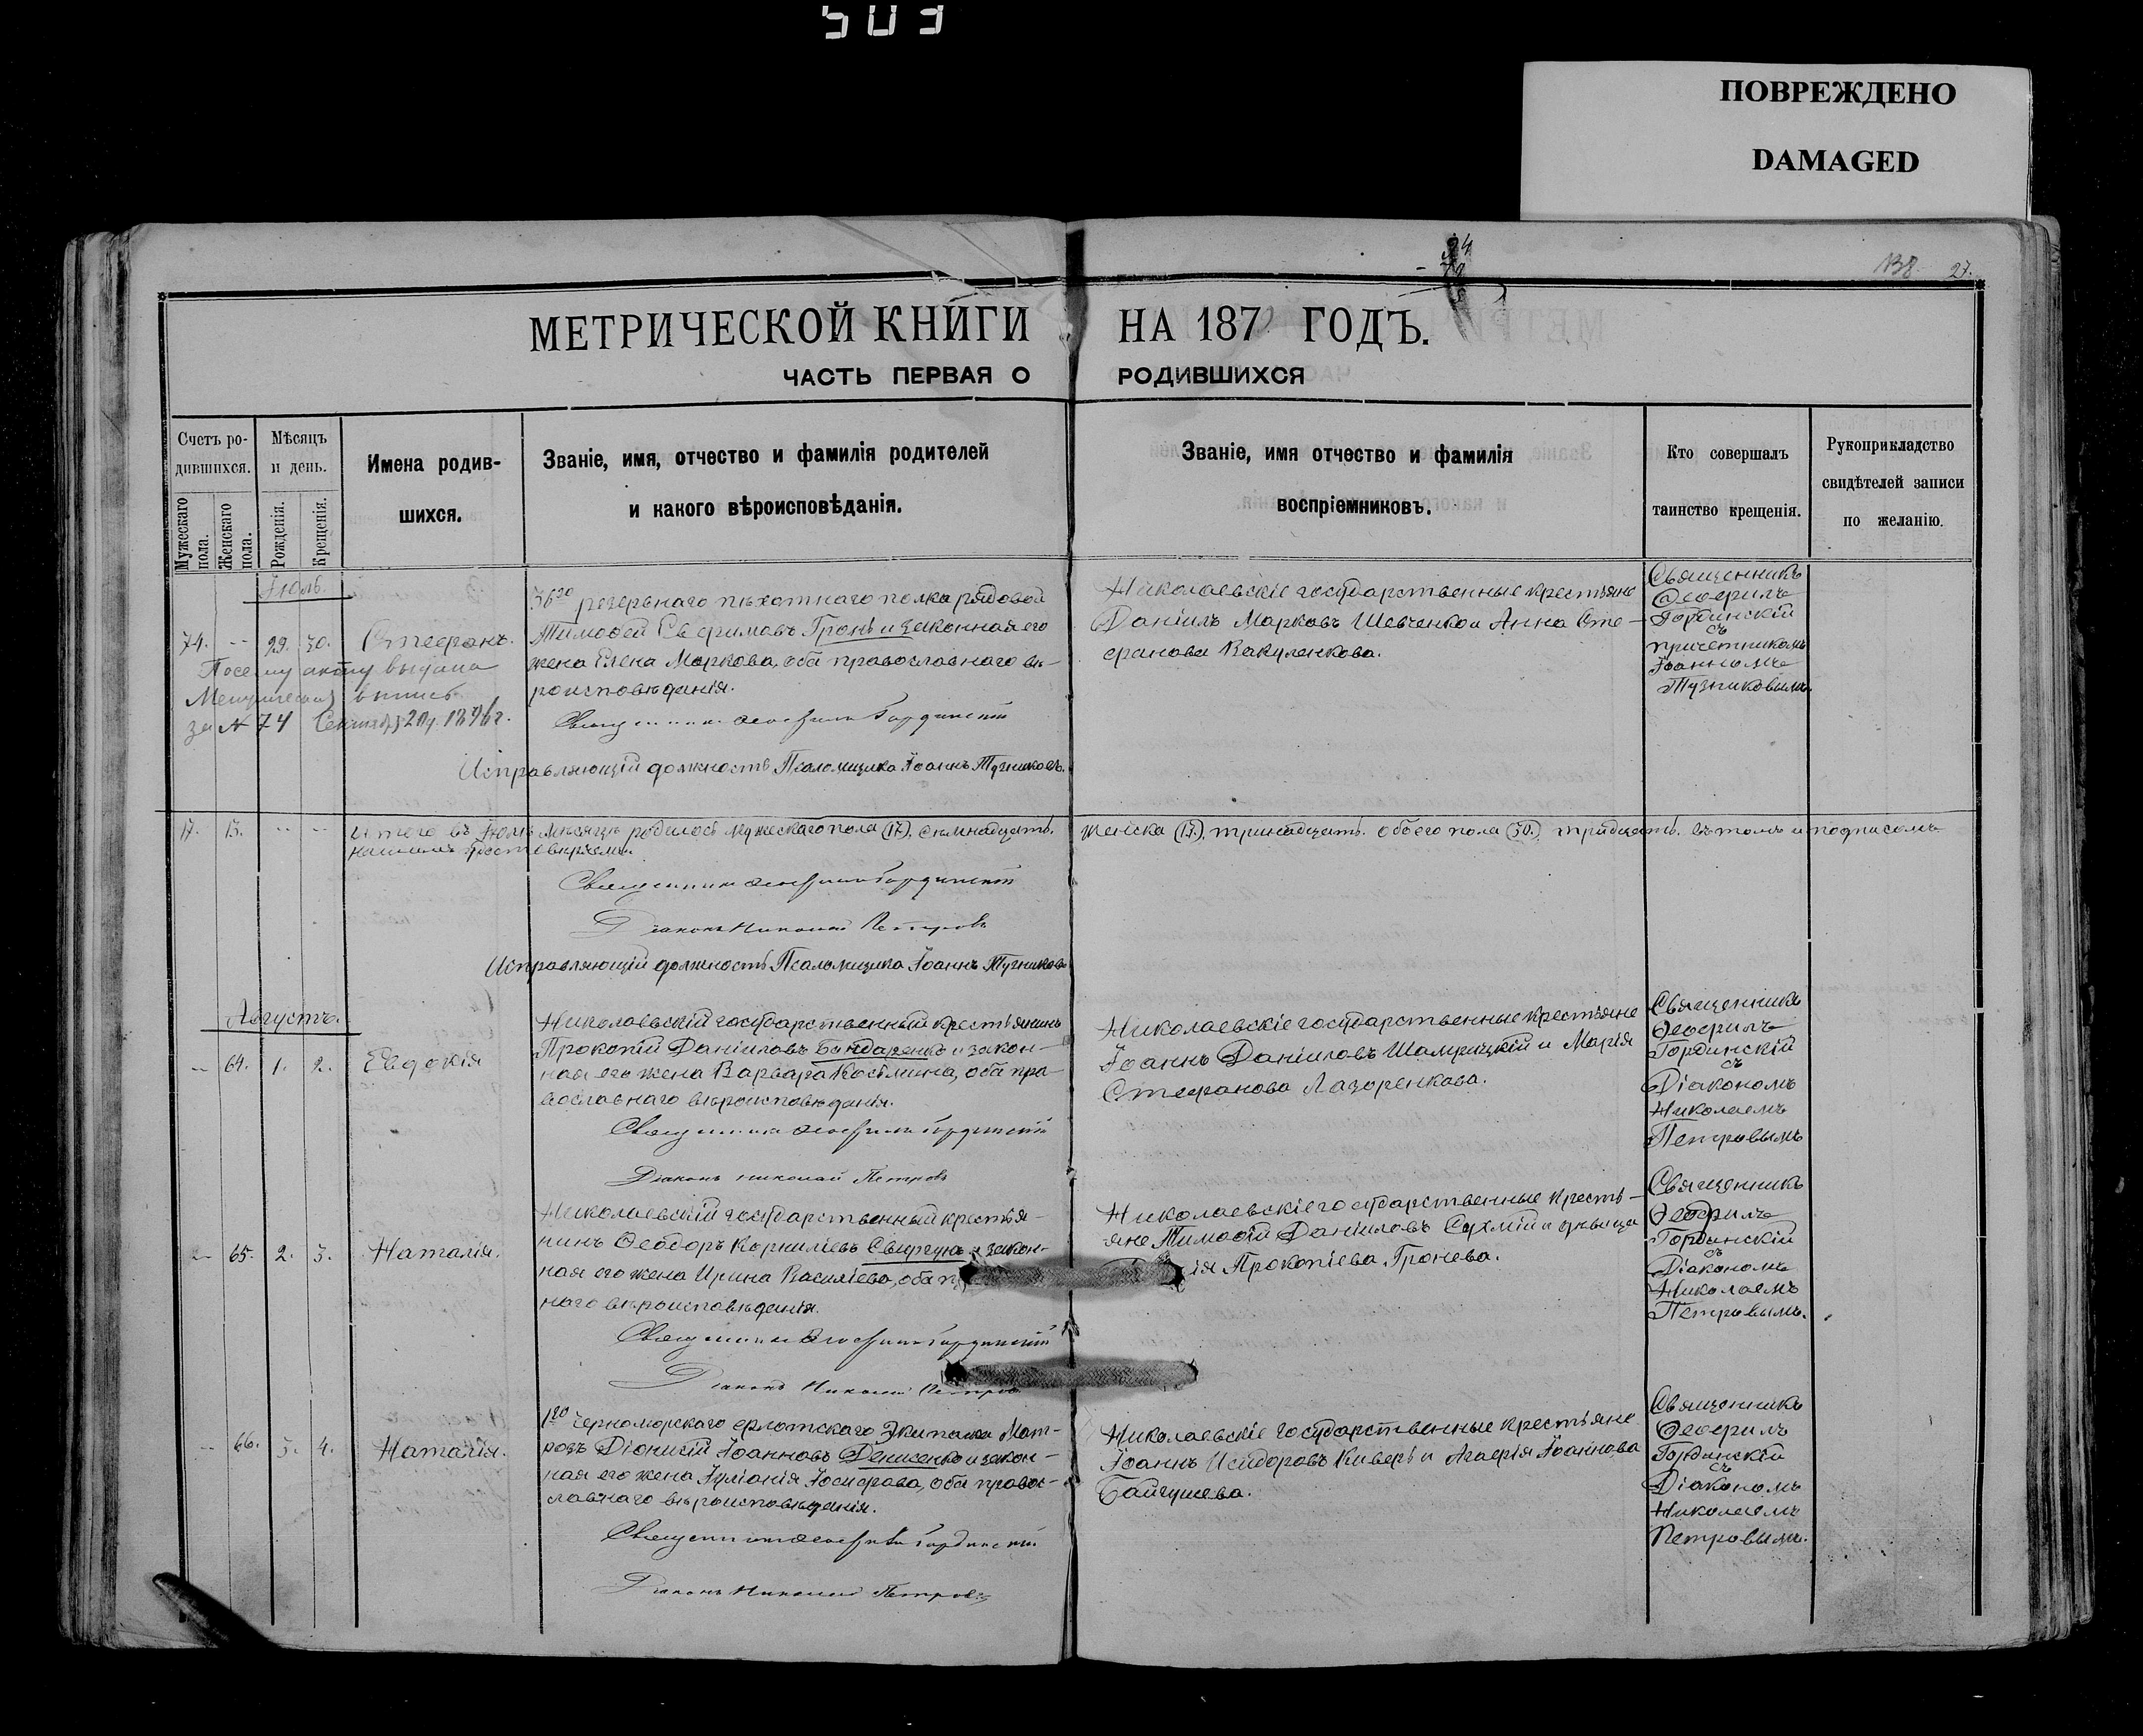 503
ПОВРЕЖДЕНО
DAMAGED
27.
МЕТРИЧЕСКОЙ КНИГИ НА 187 ГОДЪ.
ЧАСТЬ ПЕРВАЯ О РОДИВШИХСЯ
Счетъ ро-
дившихся.
Мужескаго пола.
Женскаго пола.
Мѣсяцъ
и день.
Рожденія.
Крещенія.
Имена родив-
шихся.
Званіе, имя, отчество и фамилія родителей
и какого вѣроисповѣданія.
Званіе, имя отчество и фамилія
воспріемниковъ.
Кто совершалъ
таинство крещенія.
Рукоприкладство
свидѣтелей записи
по желанію.
Іюль
74. -- 29. 30. Стефанъ.
По сему акту выдана
Метрическая выпись
за № 74 1896 г.
36го резервнаго пѣхотнаго полка рядовой
Тимоѳей Евфимовъ Гронь и законная его
жена Елена Маркова, оба православнаго вѣ-
роисповѣданія.
Священникъ Ѳеофилъ Гординскій
Исправляющій должность Псаломщика Іоаннъ Тузниковъ.
Николаевскіе государственные крестьяне
Даніилъ Марковъ Шевченко и Анна Сте-
фанова Вакуленкова.
Священникъ
Ѳеофилъ
Гординскій
съ
причетникомъ
Іоанномъ
Тузниковымъ.
17. 13. -- -- Итого въ Іюлѣ мѣсяцѣ родилось мужескаго пола (17), семнадцать. женска (13), тринадцать. обоего пола (30.) тридцать. въ томъ и подписомъ
Священникъ Ѳеофилъ Гординскій
Діаконъ Николай Петровъ
Исправляющій должность Псаломщика Іоаннъ Тузниковъ
Августъ.
-- 64. 1. 2. Евдокія
Николаевскій государственный крестьянинъ
Прокопій Даніиловъ Бондаренко и закон-
ная его жена Варвара Косьмина, оба пра-
вославнаго вѣроисповѣданія.
Священникъ Ѳеофилъ Гординскій
Діаконъ Николай Петровъ
Николаевскіе государственные крестьяне
Іоаннъ Даніиловъ Шамрицкій и Марія
Стефанова Лазоренкова.
Священникъ
Ѳеофилъ
Гординскій
съ
Діакономъ
Николаемъ
Петровымъ
-- 65. 2. 3. Наталія.
Николаевскій государственный крестья-
нинъ Ѳеодоръ Корниліевъ Свиргунъ и закон-
ная его жена Ирина Василіева, оба
наго вѣроисповѣданія.
Священникъ Ѳеофилъ Гординскій
Діаконъ Николай Петровъ
Николаевскіе государственные кресть-
яне Тимоѳей Даніиловъ Сухмій и дѣвица
ія Прокопіева Гронева.
Священникъ
Ѳеофилъ
Гординскій
съ
Діакономъ
Николаемъ
Петровымъ.
-- 66. 3. 4. Наталія.
1го Черноморскаго флотскаго Экипажа Мат-
розъ Діонисій Іоанновъ Денисенко и закон-
ная его жена Іуліанія Іосифова, оба правос-
лавнаго вѣроисповѣданія.
Священникъ Ѳеофилъ Гординскій
Діаконъ Николай Петровъ
Николаевскіе государственные крестьяне
Іоаннъ Исидоровъ Киверь и Агафія Іоаннова
Байгушева.
Священникъ
Ѳеофилъ
Гординскій
съ
Діакономъ
Николаемъ
Петровымъ.